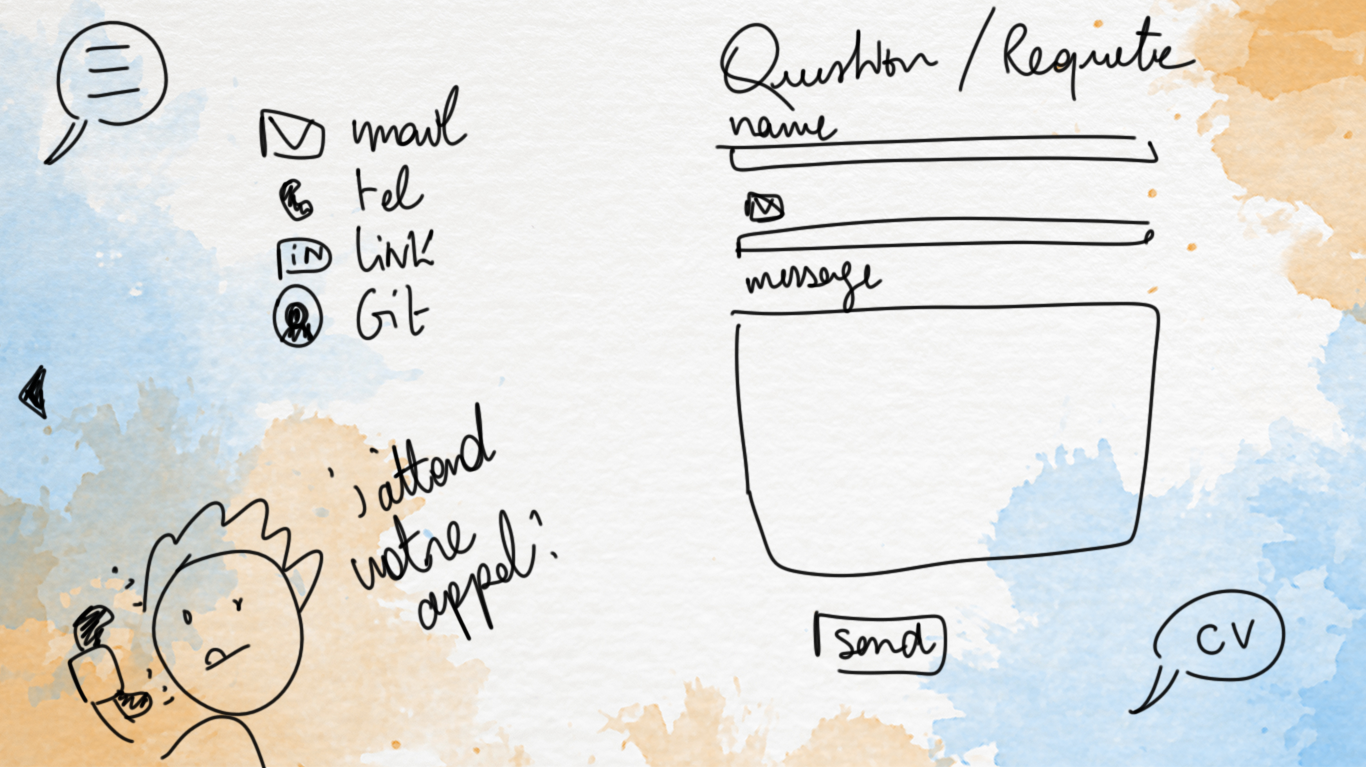 mail
tel
iN
Link
Git
j'attend
votre
appel!
Question / Requete
name
message
send
CV